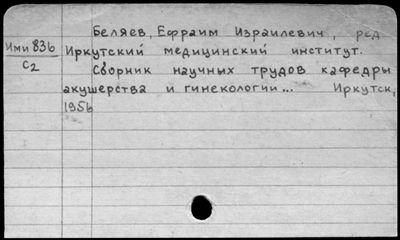 Беляев, Ефраим Израилевич, ред
Ими 836
С2
Иркутский медицинский институт.
Сборник научных трудов кафедры
акушерства и гинекологии... Иркутск,
1956